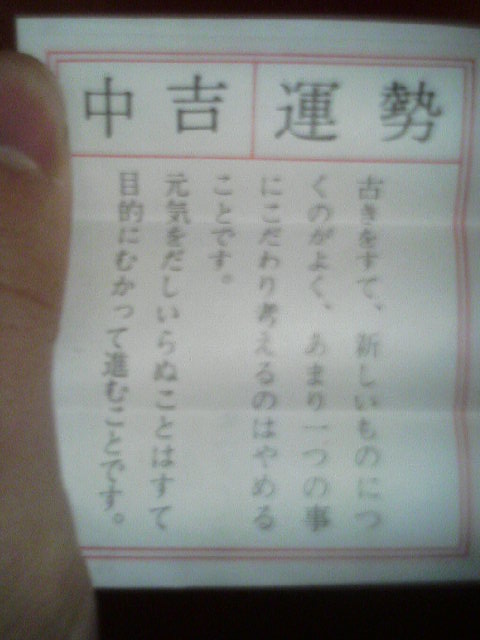 中吉 運勢
古きをすて、新しいものにつ
くのがよく、あまり一つの事
にこだわり考えるのはやめる
ことです。
元気をだしいらぬことはすて
目的にむかって進むことです。